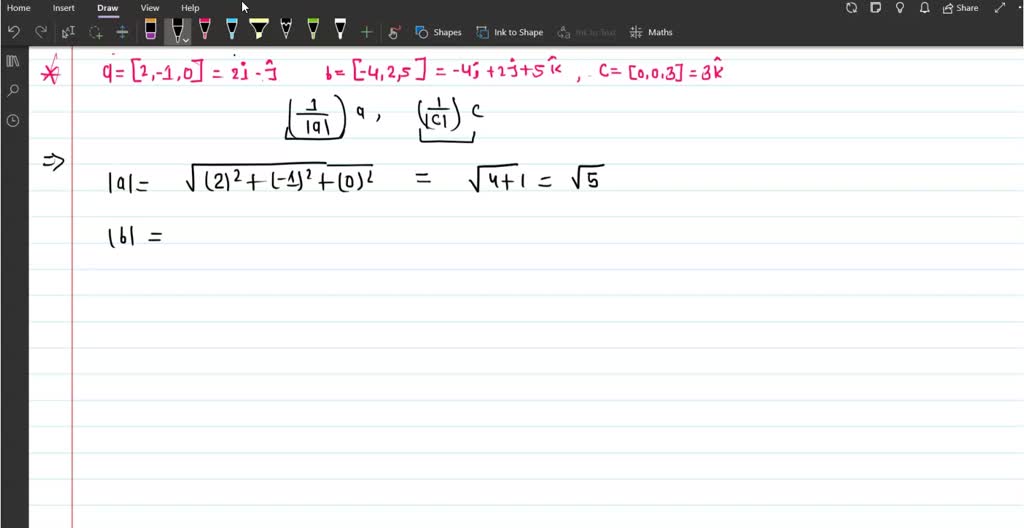 Home Insert Draw View Help Share
Shapes Ink to Shape Ink to Text Maths
a = [2,-1,0] = 2î - ĵ b = [-4,2,5] = -4î + 2ĵ + 5k̂ , C = [0,0,3] = 3k̂
(1/|a|) a , (1/|C|) C
⇒ |a| = √(2)² + (-1)² + (0)² = √4+1 = √5
|b| =